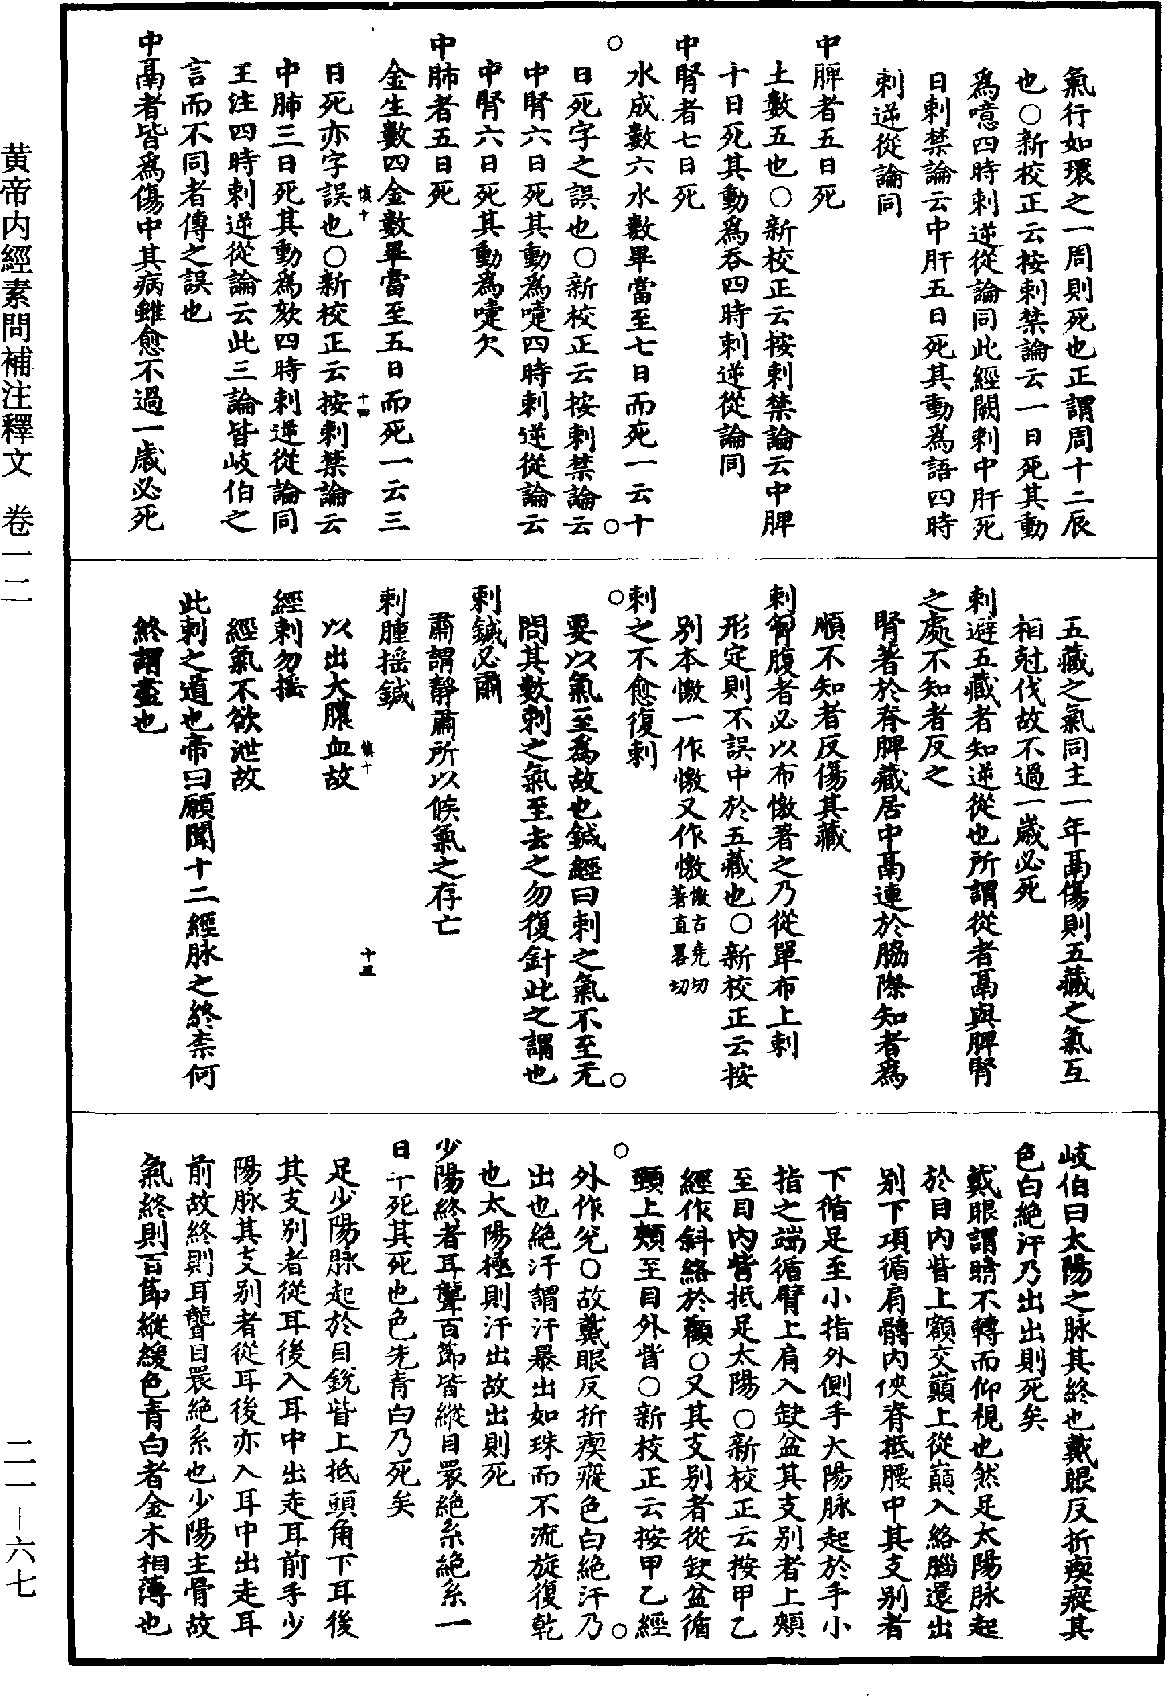 黄帝内經素問補注釋文　卷一二
二一—六七
氣行如環之一周則死也正謂周十二辰
也○新校正云按刺禁論云一日死其動
爲噫四時刺逆從論同此經闕刺中肝死
日刺禁論云中肝五日死其動爲語四時
刺逆從論同
中脾者五日死
土數五也○新校正云按刺禁論云中脾
十日死其動爲吞四時刺逆從論同
中腎者七日死
水成數六水數畢當至七日而死一云十
日死字之誤也○新校正云按刺禁論云
中腎六日死其動爲嚏四時刺逆從論云
中腎六日死其動爲嚏欠
中肺者五日死
金生數四金數畢當至五日而死一云三
日死亦字誤也○新校正云按刺禁論云
中肺三日死其動爲欬四時刺逆從論同
王注四時刺逆從論云此三論皆岐伯之
言而不同者傳之誤也
中鬲者皆爲傷中其病雖愈不過一歲必死
慎十
十四
五藏之氣同主一年鬲傷則五藏之氣互
相尅伐故不過一歲必死
刺避五藏者知逆從也所謂從者鬲與脾腎
之處不知者反之
腎著於脊脾藏居中鬲連於脇際知者爲
順不知者反傷其藏
刺胷腹者必以布憿著之乃從單布上刺
形定則不誤中於五藏也○新校正云按
別本憿一作㦪又作憿憿古堯切著直畧切
刺之不愈復刺
要以氣至爲故也鍼經曰刺之氣不至无
問其數刺之氣至去之勿復針此之謂也
刺鍼必肅
肅謂靜肅所以候氣之存亡
刺腫摇鍼
以出大膿血故
經刺勿摇
經氣不欲泄故
此刺之道也帝曰願聞十二經脉之終柰何
終謂盡也
慎十
十五
岐伯曰太陽之脉其終也戴眼反折瘈瘲其
色白絕汗乃出出則死矣
戴眼謂睛不轉而仰視也然足太陽脉起
於目內眥上額交巔上從巔入絡腦還出
别下項循肩髆內俠脊抵腰中其支别者
下循足至小指外側手太陽脉起於手小
指之端循臂上肩入缺盆其支别者上頰
至目內眥抵足太陽○新校正云按甲乙
經作斜絡於顴○又其支别者從缺盆循
頸上頰至目外眥○新校正云按甲乙經
外作兊○故戴眼反折瘈瘲色白絕汗乃
出也絕汗謂汗暴出如珠而不流旋復乾
也太陽極則汗出故出則死
少陽終者耳聾百節皆縱目睘絕系絕系一
日半死其死也色先青白乃死矣
足少陽脉起於目銳眥上抵頭角下耳後
其支别者從耳後入耳中出走耳前手少
陽脉其支别者從耳後亦入耳中出走耳
前故終則耳聾目睘絕系也少陽主骨故
氣終則百節縱緩色青白者金木相薄也